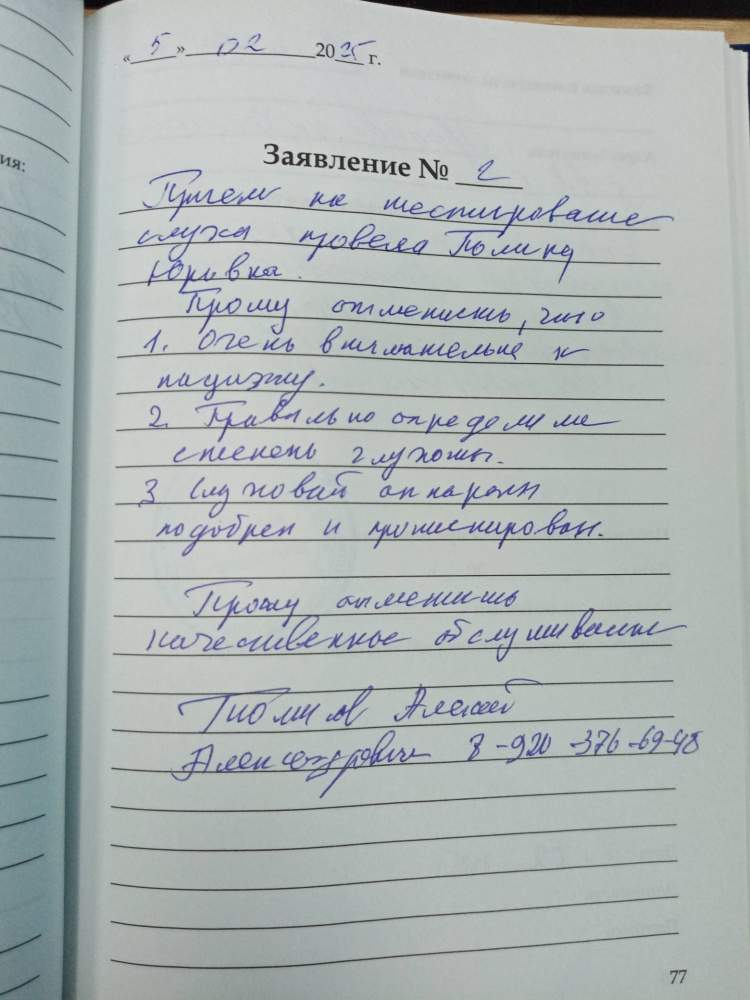 «5» 02 2025 г.
Заявление № 2
Прием на тестирование
слуха провела Полина
Юривна.
Прошу отметить, что
1. Очень внимательна к
пациэнту.
2. Правильно определили
степень глухоты.
3 Слуховой аппарат
подобрен и протестирован.
Прошу отметить
качественное обслуживание
Алексей
Александрович 8-920-376-69-48
77
ия: